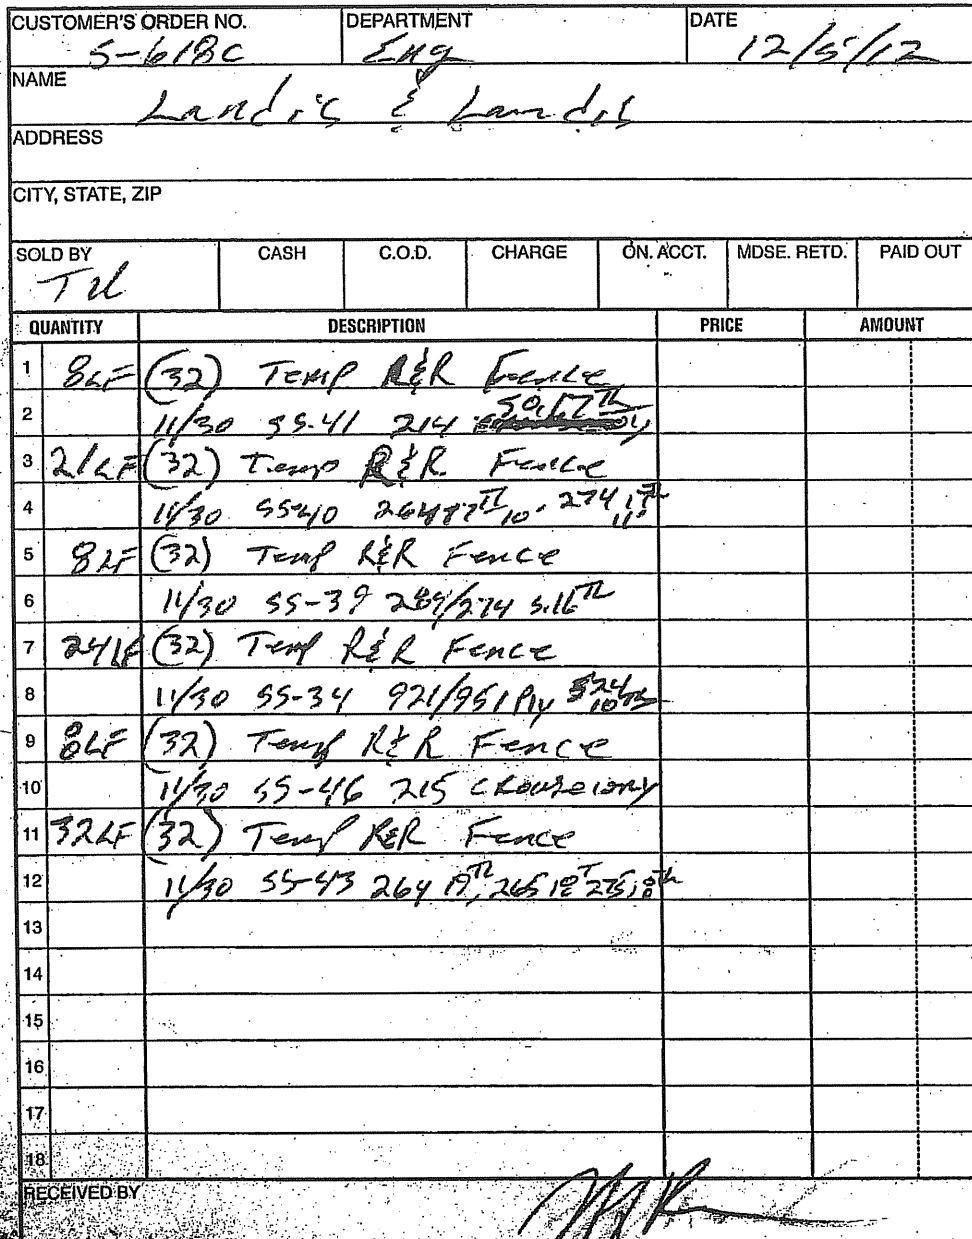 CUSTOMER'S ORDER NO. DEPARTMENT DATE
S-618C Eng 12/5/12
NAME
Landis & Landis
ADDRESS
CITY, STATE, ZIP
SOLD BY CASH C.O.D. CHARGE ON. ACCT. MDSE. RETD. PAID OUT
QUANTITY DESCRIPTION PRICE AMOUNT
1 8LF (32) Temp R&R Fence
2 11/30 SS-41 214 So. 17th
3 21LF (32) Temp R&R Fence
4 11/30 SS-40 264
5 8LF (32) Temp R&R Fence
6 11/30 SS-39 269/274 S.16th
7 24LF (32) Temp R&R Fence
8 11/30 SS-34 921/951 Ply
9 8LF (32) Temp R&R Fence
10 11/30 SS-46 215
11 32LF (32) Temp R&R Fence
12 11/30 SS-43 264 19th, 265 18th 275,18th
13
14
15
16
17
18
RECEIVED BY